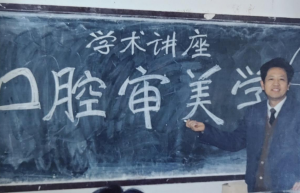 学术讲座
口腔审美学